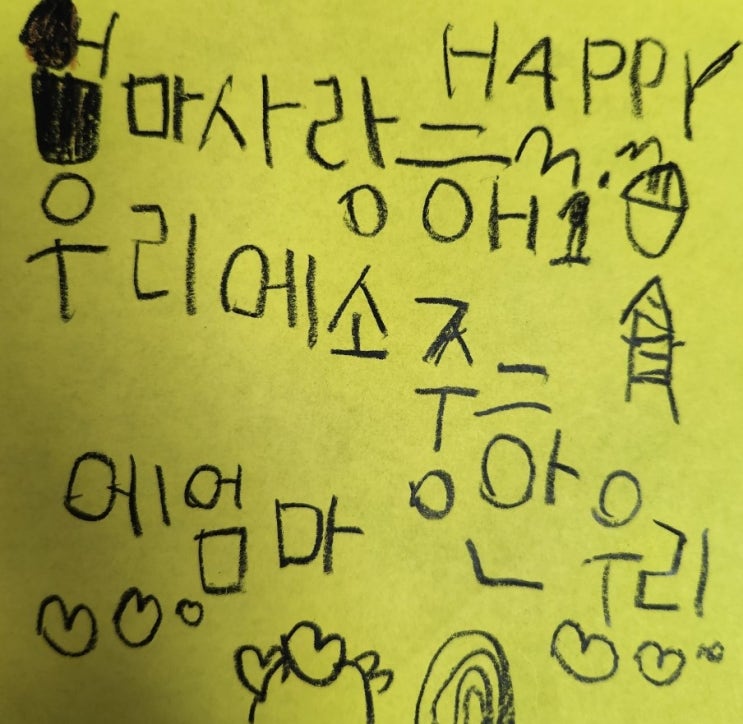 HAPPY
엄마사랑해
우리에소중한
우리
에엄마